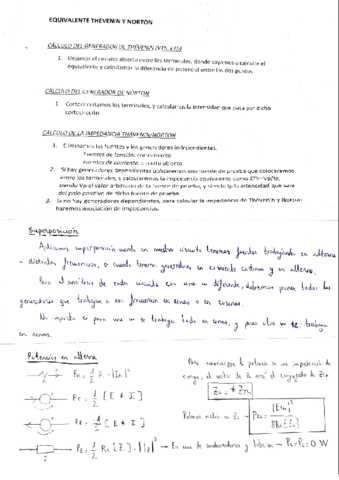 EQUIVALENTE THÉVENIN Y NORTON
CÁLCULO DEL GENERADOR DE THÉVENIN
1. Dejamos el circuito abierto entre los terminales, donde vayamos a calcular el
equivalente y calculamos la diferencia de potencial entre los dos puntos.
CÁLCULO DEL GENERADOR DE NORTON
1. Cortocircuitamos los terminales, y calculamos la intensidad que pasa por dicho
cortocircuito.
CÁLCULO DE LA IMPEDANCIA THÉVENIN/NORTON
1. Eliminamos las fuentes y los generadores independientes.
Fuentes de tensión: cortocircuito
Fuentes de corriente: circuito abierto
2. Si hay generadores dependientes utilizaremos una fuente de prueba que colocaremos
entre los terminales, y calcularemos la impedancia equivalente como ZTh=Vp/Ip,
siendo Vp el valor arbitrario de la fuente de prueba, y siendo Ip la intensidad que sale
del polo positivo de dicha fuente de prueba.
3. Si no hay generadores dependientes, para calcular la impedancia de Thévenin y Norton
haremos asociación de impedancias.
Superposición
Aplicamos superposición cuando en nuestro circuito tenemos fuentes trabajando en alterna
a distintas frecuencias, o cuando tenemos generadores en corriente continua y en alterna.
Para el análisis de cada circuito con una w diferente, debemos poner todos los
generadores que trabajan a esa frecuencia en senos o en cosenos.
No importa si para una w se trabaja todo en senos, y para otra w se trabaja
en cosenos.
Potencia en alterna
Para maximizar la potencia en una impedancia de
carga, el valor de ZL será el conjugado de ZTh